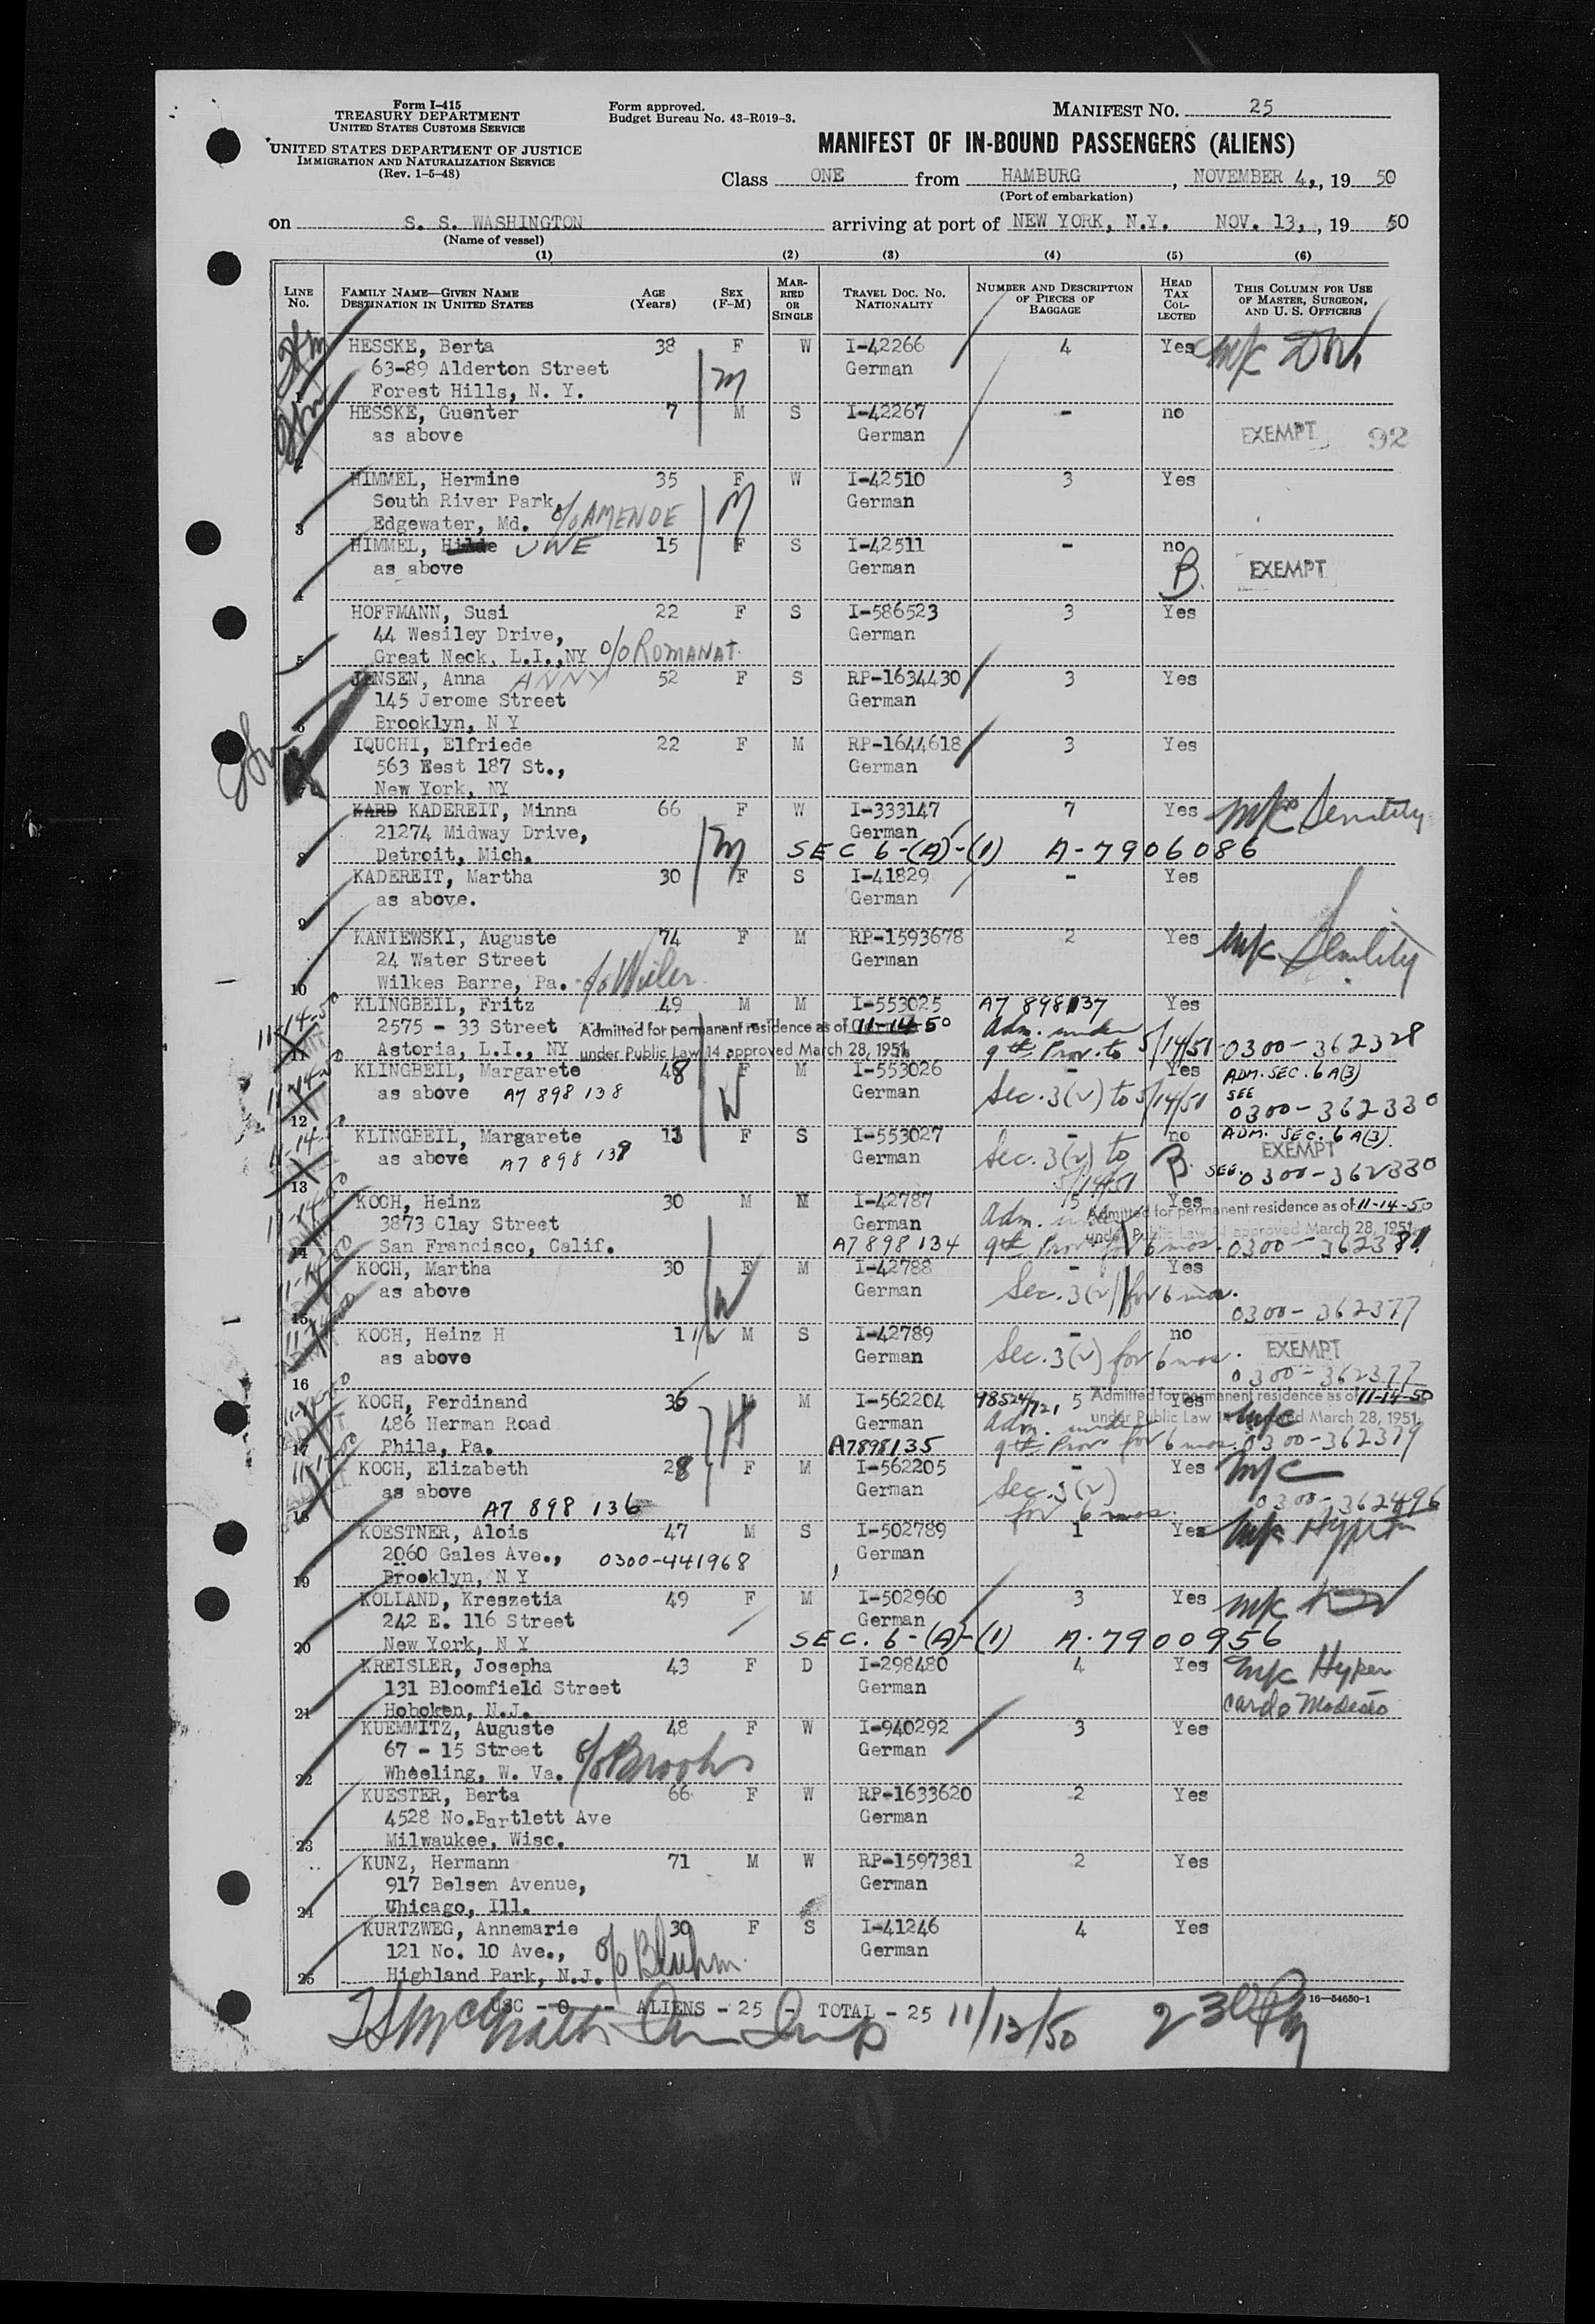 Form I-415
TREASURY DEPARTMENT
UNITED STATES CUSTOMS SERVICE
UNITED STATES DEPARTMENT OF JUSTICE
IMMIGRATION AND NATURALIZATION SERVICE
(Rev. 1-5-48)
Form approved.
Budget Bureau No. 43-R019-3.
MANIFEST NO. 25
MANIFEST OF IN-BOUND PASSENGERS (ALIENS)
Class ONE from HAMBURG, NOVEMBER 4, 1950
(Port of embarkation)
on S. S. WASHINGTON arriving at port of NEW YORK, N.Y. NOV. 13, 1950
(Name of vessel)
(1) (2) (3) (4) (5) (6)
LINE No. FAMILY NAME—GIVEN NAME DESTINATION IN UNITED STATES AGE (Years) SEX (F-M) MARRIED OR SINGLE TRAVEL DOC. NO. NATIONALITY NUMBER AND DESCRIPTION OF PIECES OF BAGGAGE HEAD TAX COLLECTED THIS COLUMN FOR USE OF MASTER, SURGEON, AND U. S. OFFICERS
HESSKE, Berta 38 F W I-42266 4 Yes
63-89 Alderton Street German
Forest Hills, N. Y.
HESSKE, Guenter 7 M S I-42267 - no
as above German EXEMPT 92
HIMMEL, Hermine 35 F W I-42510 3 Yes
South River Park German
3 Edgewater, Md. c/o AMENDE
HIMMEL, Hilde UWE 15 F S I-42511 - no
as above German B. EXEMPT
4
HOFFMANN, Susi 22 F S I-586523 3 Yes
44 Wesiley Drive, German
5 Great Neck, L.I.,NY c/o ROMANAT
JENSEN, Anna ANNY 52 F S RP-1634430 3 Yes
145 Jerome Street German
6 Brooklyn, N Y
IQUCHI, Elfriede 22 F M RP-1644618 3 Yes
563 West 187 St., German
New York, NY
KARD KADEREIT, Minna 66 F W I-333147 7 Yes M/C Senility
21274 Midway Drive, German
8 Detroit, Mich. SEC 6-(A)-(1) A-7906086
KADEREIT, Martha 30 F S I-41829 - Yes
as above. German
9
KANIEWSKI, Auguste 74 F M RP-1593678 2 Yes M/C Senility
24 Water Street German
10 Wilkes Barre, Pa.
KLINGBEIL, Fritz 49 M M I-553025 A7 898137 Yes
2575 - 33 Street Admitted for permanent residence as of 11-14-50 German Adm. under
11 Astoria, L.I., NY under Public Law 14 approved March 28, 1951. 9th Prov. to 5/14/51 0300-362328
KLINGBEIL, Margarete 48 F M I-553026 Yes ADM. SEC. 6 A(3)
as above A7 898 138 German Sec. 3(2) to 5/14/51 SEE
12 0300-362330
KLINGBEIL, Margarete 13 F S I-553027 - no ADM. SEC. 6 A(3).
as above A7 898 139 German Sec. 3(2) to B EXEMPT
13 5/14/51 SEE. 0300-362330
KOCH, Heinz 30 M M I-42787 15 Yes Admitted for permanent residence as of 11-14-50
3873 Clay Street German Adm. under under Public Law 14 approved March 28, 1951.
14 San Francisco, Calif. A7898134 9th Prov. for 6 mos. 0300-362381
KOCH, Martha 30 F M I-42788 - Yes
as above German Sec. 3(2) for 6 mos.
15 0300-362377
KOCH, Heinz H 1 1/2 M S I-42789 - no
as above German Sec. 3(2) for 6 mos. EXEMPT
16 0300-362377
KOCH, Ferdinand 36 M M I-562204 98524/721 5 Yes Admitted for permanent residence as of 11-14-50
486 Herman Road German Adm. under under Public Law 14 approved March 28, 1951. M/C
17 Phila, Pa. A7898135 9th Prov for 6 mos. 0300-362379
KOCH, Elizabeth 28 F M I-562205 - Yes M/C
as above German Sec. 3(2)
18 A7 898 136 for 6 mos. 0300-362496
KOESTNER, Alois 47 M S I-502789 1 Yes M/C
2060 Gales Ave., 0300-441968 German
19 Brooklyn, N Y
KOLLAND, Kreszetia 49 F M I-502960 3 Yes M/C
242 E. 116 Street German
20 New York, N Y SEC. 6-(A)-(1) A-7900956
KREISLER, Josepha 43 F D I-298480 4 Yes M/C Hyper
131 Bloomfield Street German
21 Hoboken, N.J.
KUEMMITZ, Auguste 48 F W I-940292 3 Yes
67 - 15 Street German
22 Wheeling, W. Va. c/o Brooks
KUESTER, Berta 66 F W RP-1633620 2 Yes
4528 No.Bartlett Ave German
23 Milwaukee, Wisc.
KUNZ, Hermann 71 M W RP-1597381 2 Yes
917 Belsen Avenue, German
24 Chicago, Ill.
KURTZWEG, Annemarie 30 F S I-41246 4 Yes
121 No. 10 Ave., German
25 Highland Park, N.J. c/o Bluhm
USC - 0 - ALIENS - 25 - TOTAL - 25 11/13/50 230 PM
16—54650-1